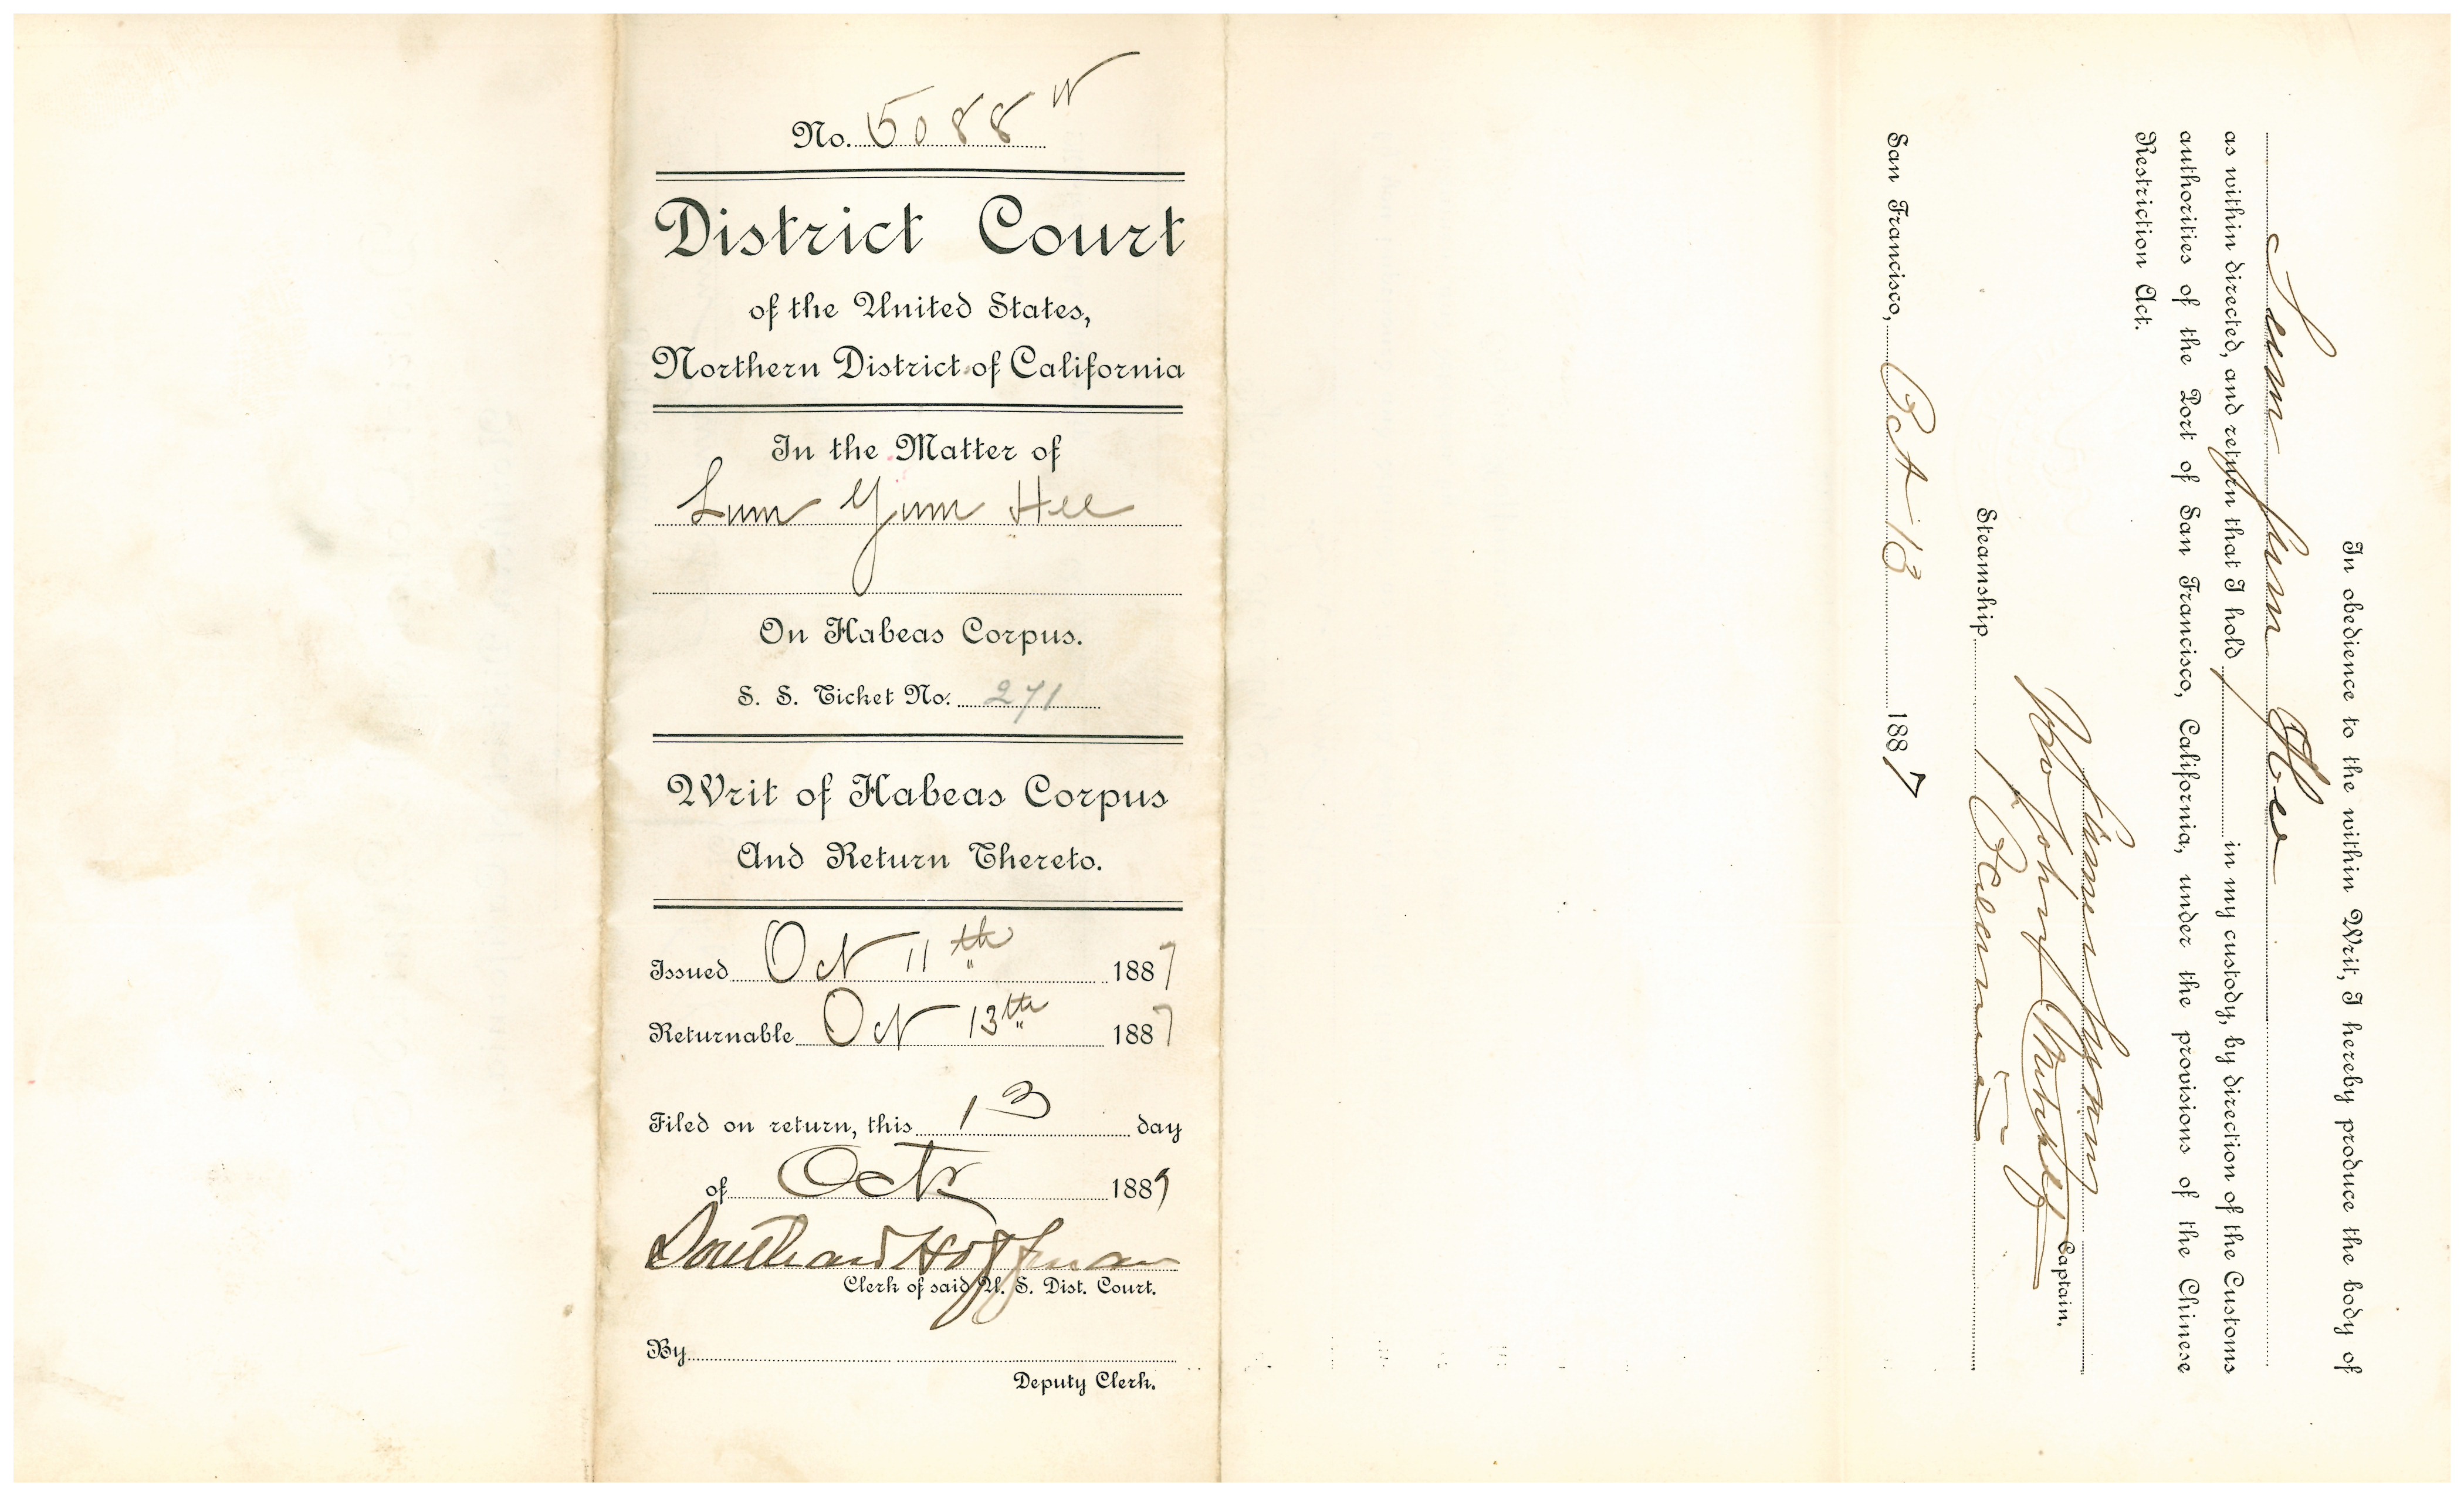 No. 5088 N
District Court
of the United States,
Northern District of California
In the Matter of
Lum Yum Hee
On Habeas Corpus.
S. S. Ticket No. 271
Writ of Habeas Corpus
And Return Thereto.
Issued Oct 11th 1887
Returnable Oct 13th 1887
Filed on return, this 13 day
of Octr 1887
Southard Hoffman
Clerk of said U. S. Dist. Court.
By
Deputy Clerk.
In obedience to the within Writ, I hereby produce the body of
Lum Yum Hee
as within directed, and return that I hold in my custody, by direction of the Customs
authorities of the Port of San Francisco, California, under the provisions of the Chinese
Restriction Act.
Captain.
Steamship Belgic
San Francisco, Oct 13 1887